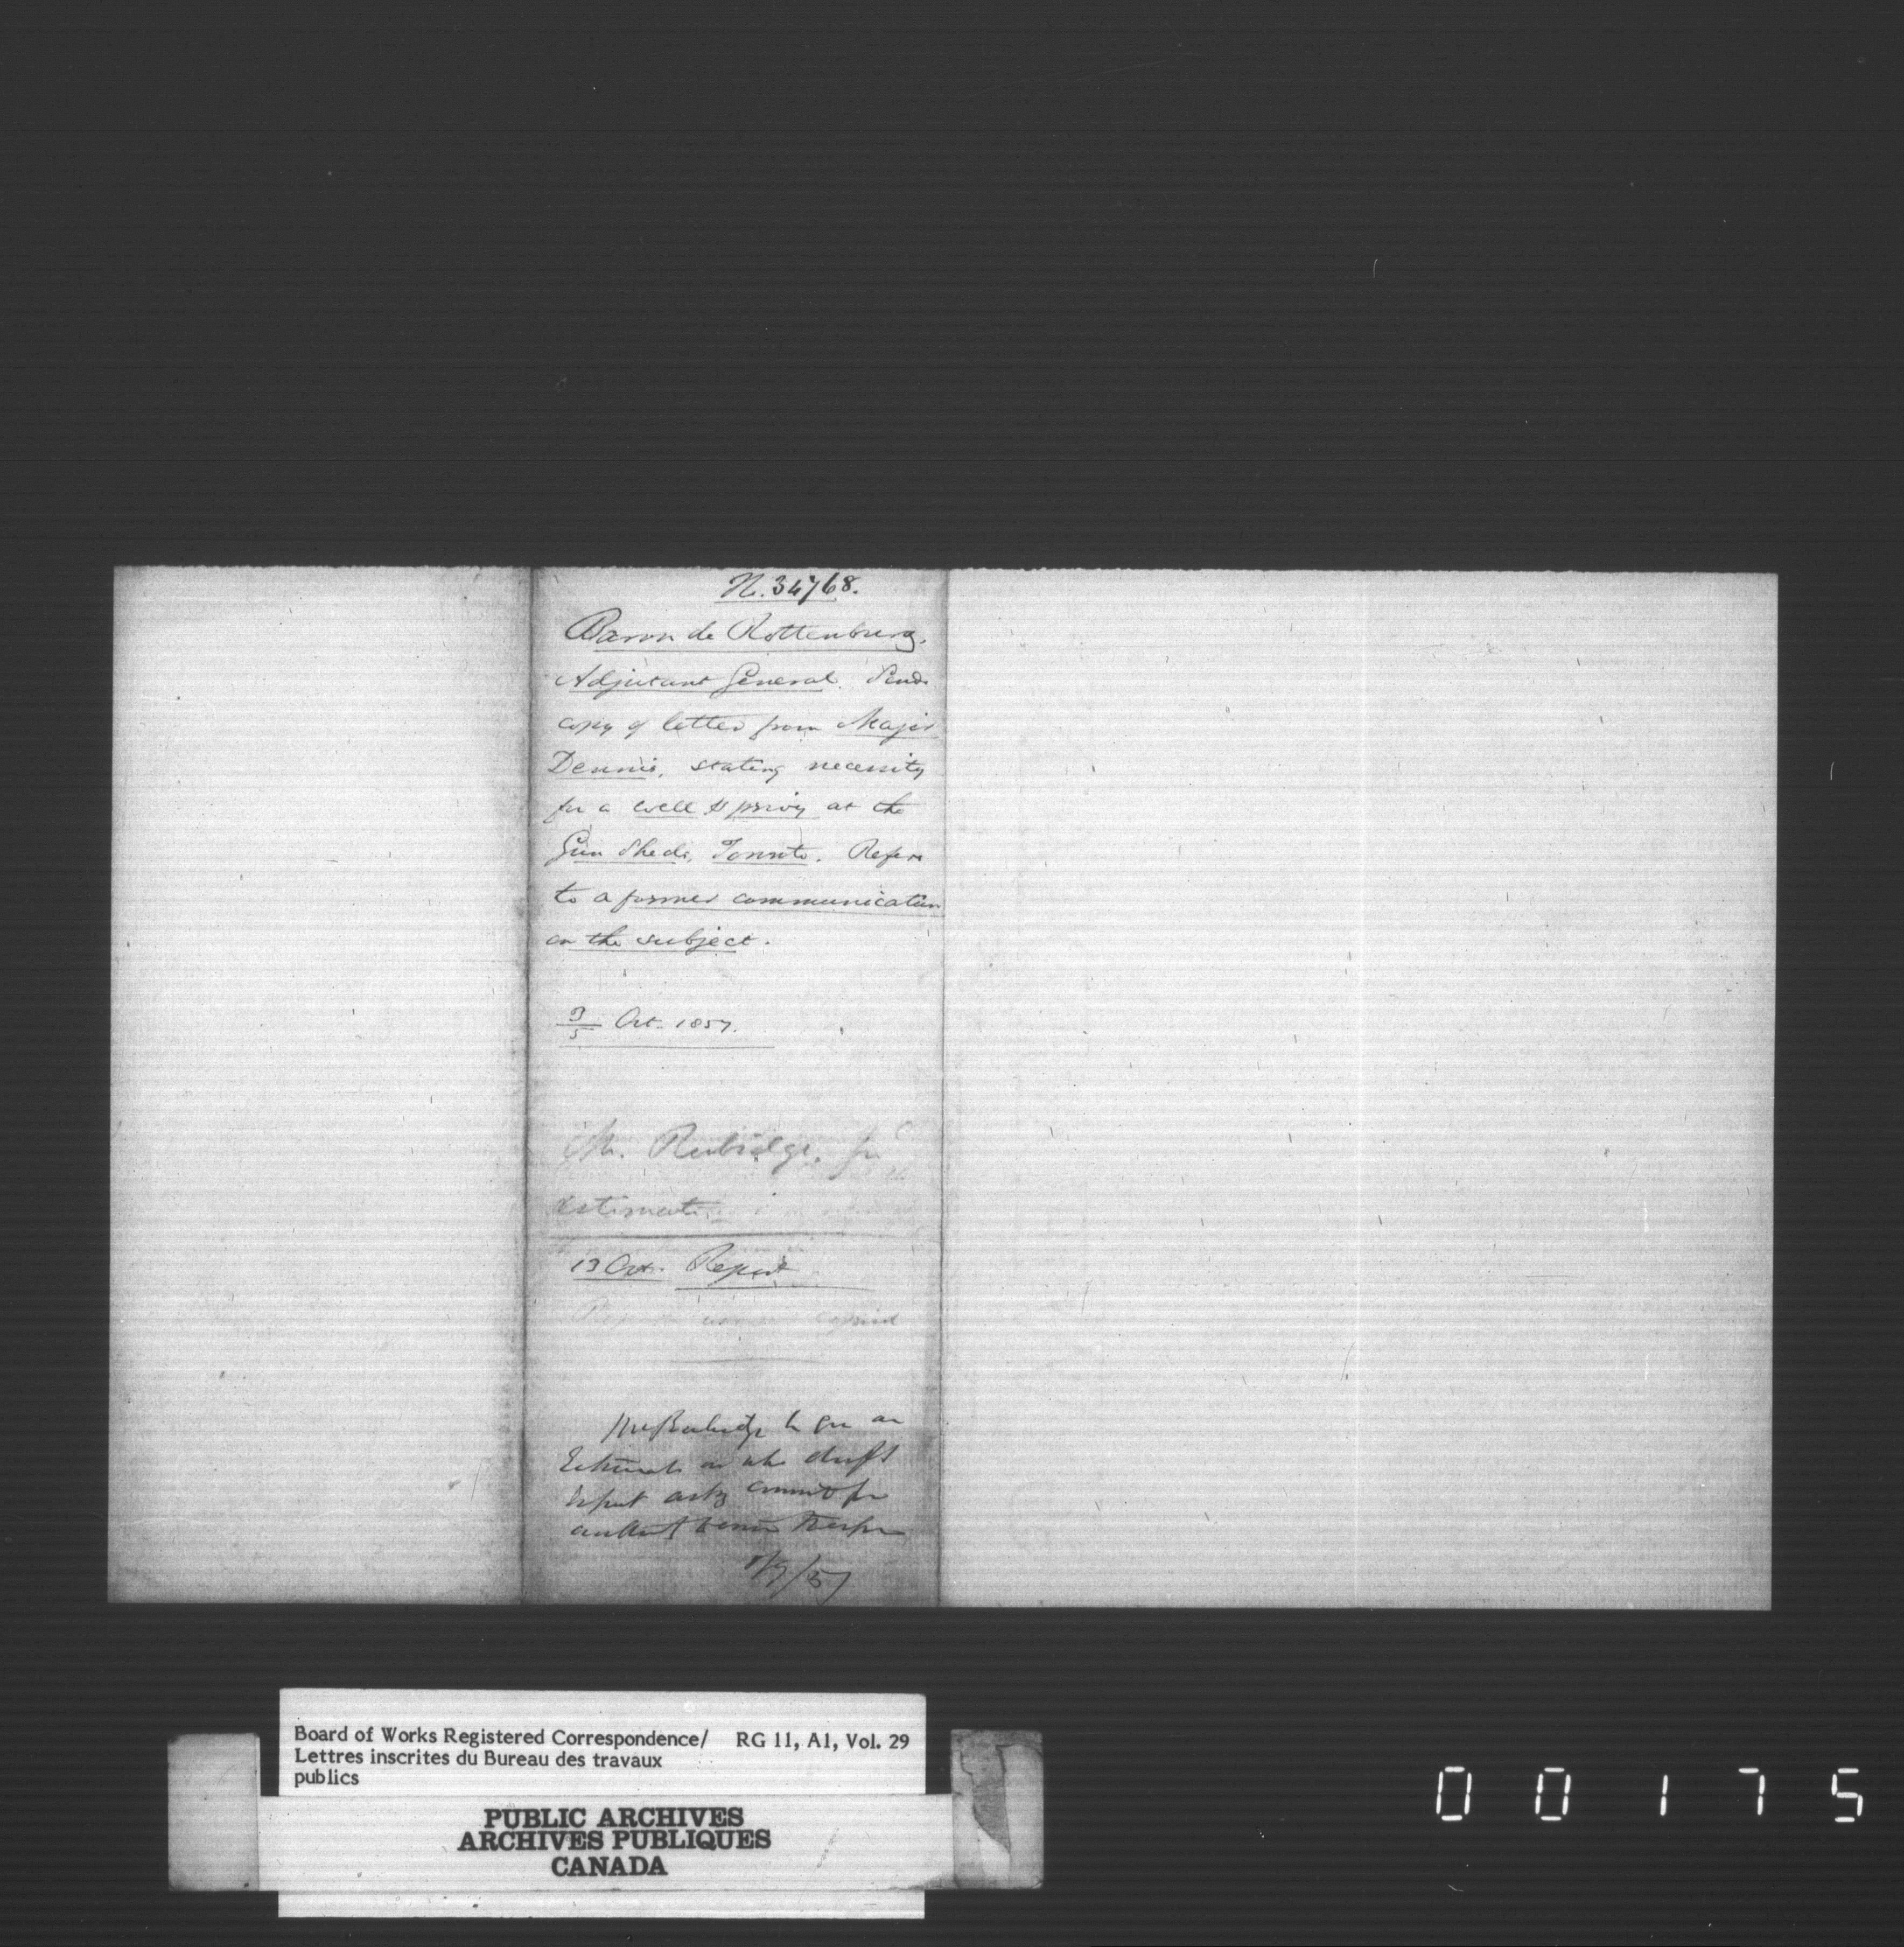 No. 34768.
Baron de Rottenburg,
Adjutant General. Sends
copy of letter from Major
Dennis, stating necessity
for a well & privy at the
Gun Sheds, Toronto. Refers
to a former communication
on the subject.
3/5 Oct. 1857.
Mr. Rubidge. for
estimate
13 Oct. Report
Report copied
Mr Rubidge to give an
Estimate
report
/57
Board of Works Registered Correspondence/ RG 11, A1, Vol. 29
Lettres inscrites du Bureau des travaux
publics
PUBLIC ARCHIVES
ARCHIVES PUBLIQUES
CANADA
00175